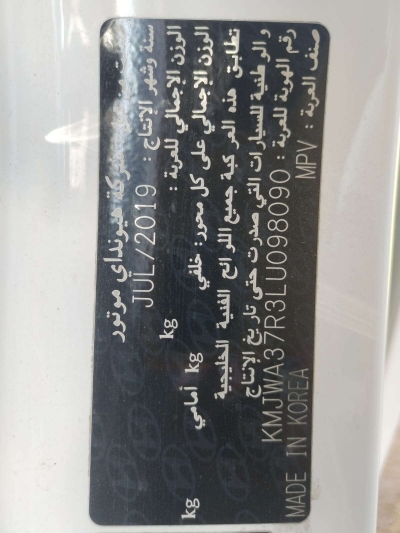 شركة هيونداي موتور
سنة وشهر الإنتاج : JUL/2019
الوزن الإجمالي للعربة : kg
الوزن الإجمالي على كل محور: خلفي kg أمامي kg
تطابق هذه المركبة جميع اللوائح الفنية الخليجية
و الوطنية للسيارات التي صدرت حتى تاريخ الإنتاج
رقم الهوية للعربة : KMJWA37R3LU098090
صنف العربة : MPV MADE IN KOREA